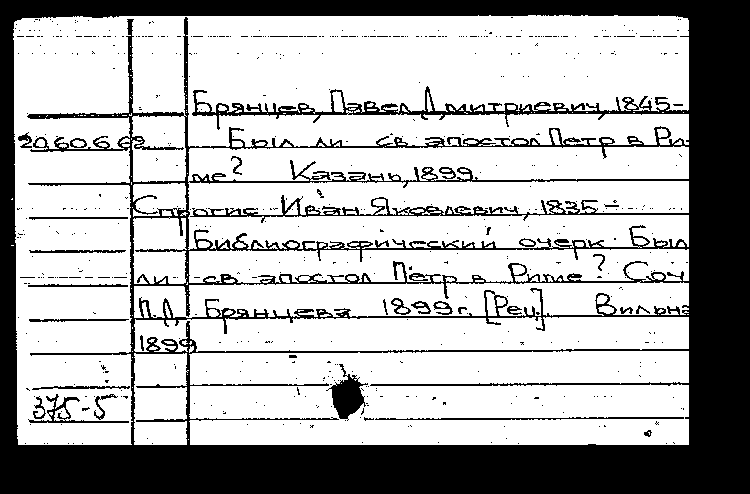 Брянцев, Павел Дмитриевич, 1845-
20.60.6.62 Был ли св. апостол Петр в Ри-
ме? Казань, 1899.
Спрогис, Иван Яковлевич, 1835-
Библиографический очерк. Был
ли св апостол Петр в Риме? Соч
П.Д. Брянцева 1899г. [Рец]. Вильна
1899
375-5